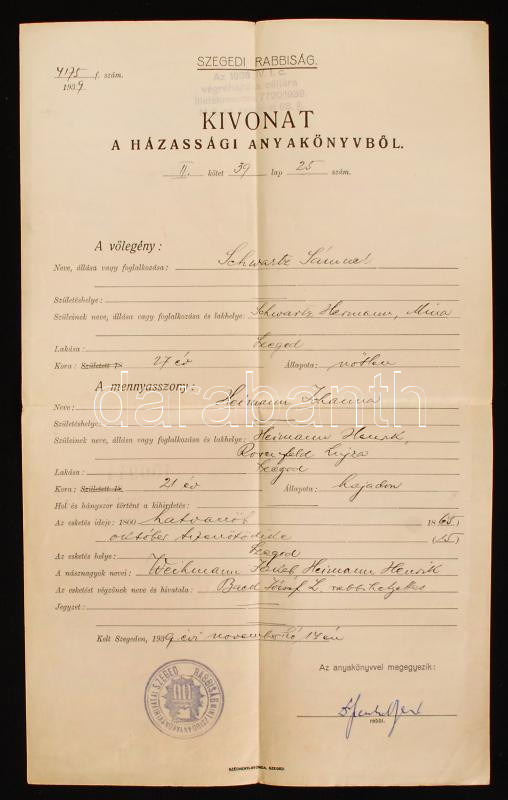 SZEGEDI RABBISÁG.
4175 f. szám.
1939.
Az 1938. IV. t. c.
végrehajtása céljára
illetékmentes
KIVONAT
A HÁZASSÁGI ANYAKÖNYVBŐL.
II. kötet 39 lap 25 szám.
A vőlegény:
Neve, állása vagy foglalkozása: Schwartz Sámuel
Születéshelye:
Szüleinek neve, állása vagy foglalkozása és lakhelye: Schwartz Hermann, Mina
Lakása: Szeged
Kora: Született 18 27 év Állapota: nőtlen
A mennyasszony:
Neve: Heimann Johanna
Születéshelye:
Szüleinek neve, állása vagy foglalkozása és lakhelye: Heimann Henrik,
Rosenfeld Lujza
Lakása: Szeged
Kora: Született 18 21 év Állapota: hajadon
Hol és hányszor történt a kihirdetés:
Az esketés ideje: 1800 hatvanöt 1865)
október tizenötödike (15)
Az esketés helye: Szeged
A násznagyok nevei: Weihmann Heimann Henrik
Az esketést végzőnek neve és hivatala: Bach József L. rabbihelyettes
Jegyzet:
Kelt Szegeden, 1939 évi november hó 14 én
Az anyakönyvvel megegyezik:
rabbi.
SZEGED RABBISÁG
darabanth